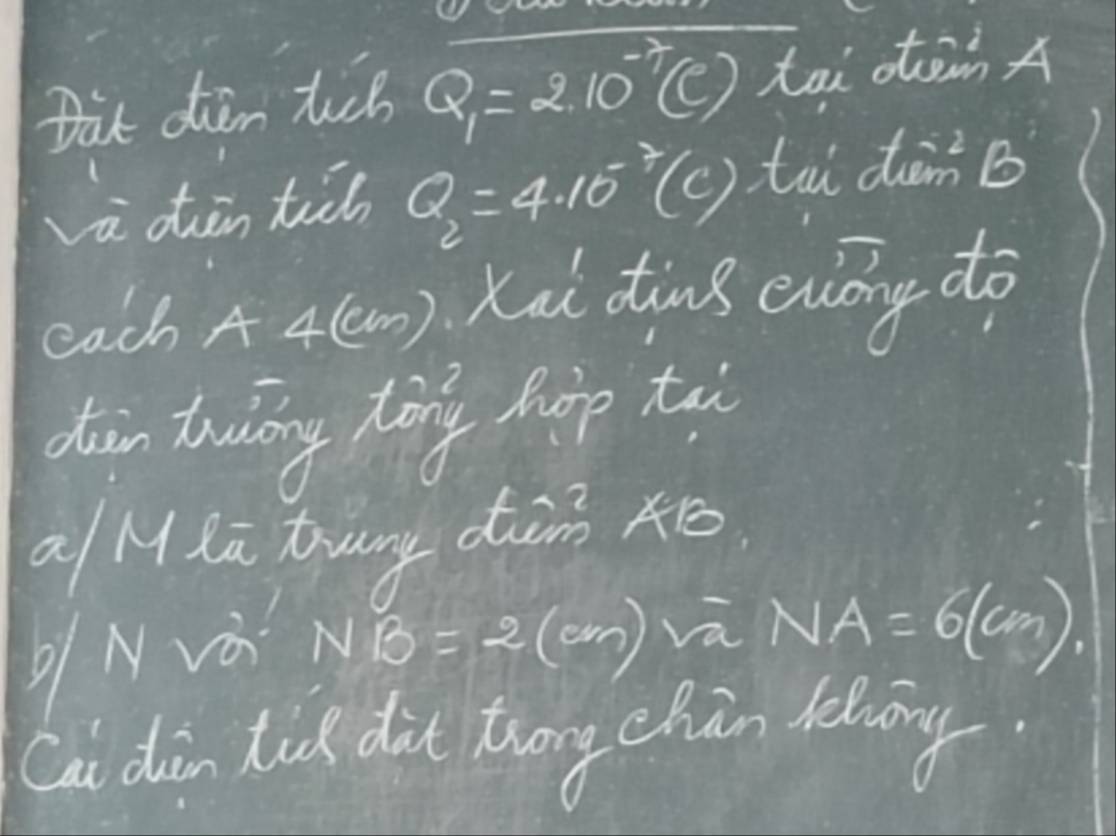 Đặt điện tích Q₁ = 2.10⁻⁷(C) tại điểm A
và điện tích Q₂ = 4.10⁻⁷(C) tại điểm B
cách A 4(cm). Xác định cường độ
điện trường tổng hợp tại
a/ M là trung điểm AB.
b/ N với NB = 2(cm) và NA = 6(cm).
Các điện tích đặt trong chân không.